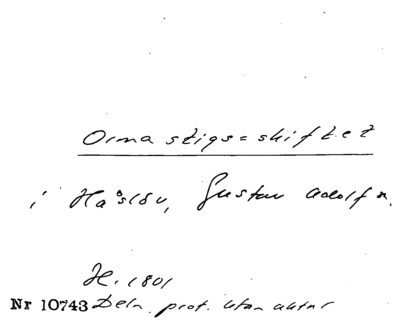 Ormastigs=skiftet
i Håslöv, Gustav Adolf s.
H. 1801
Nr 10743 Deln. prot. utan aktnr